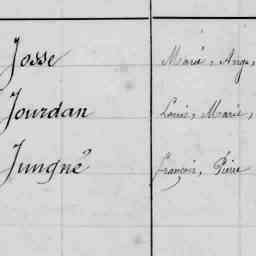 Josse Marie, Ange,
Jourdan Louis, Marie,
Jungné François, Pierre